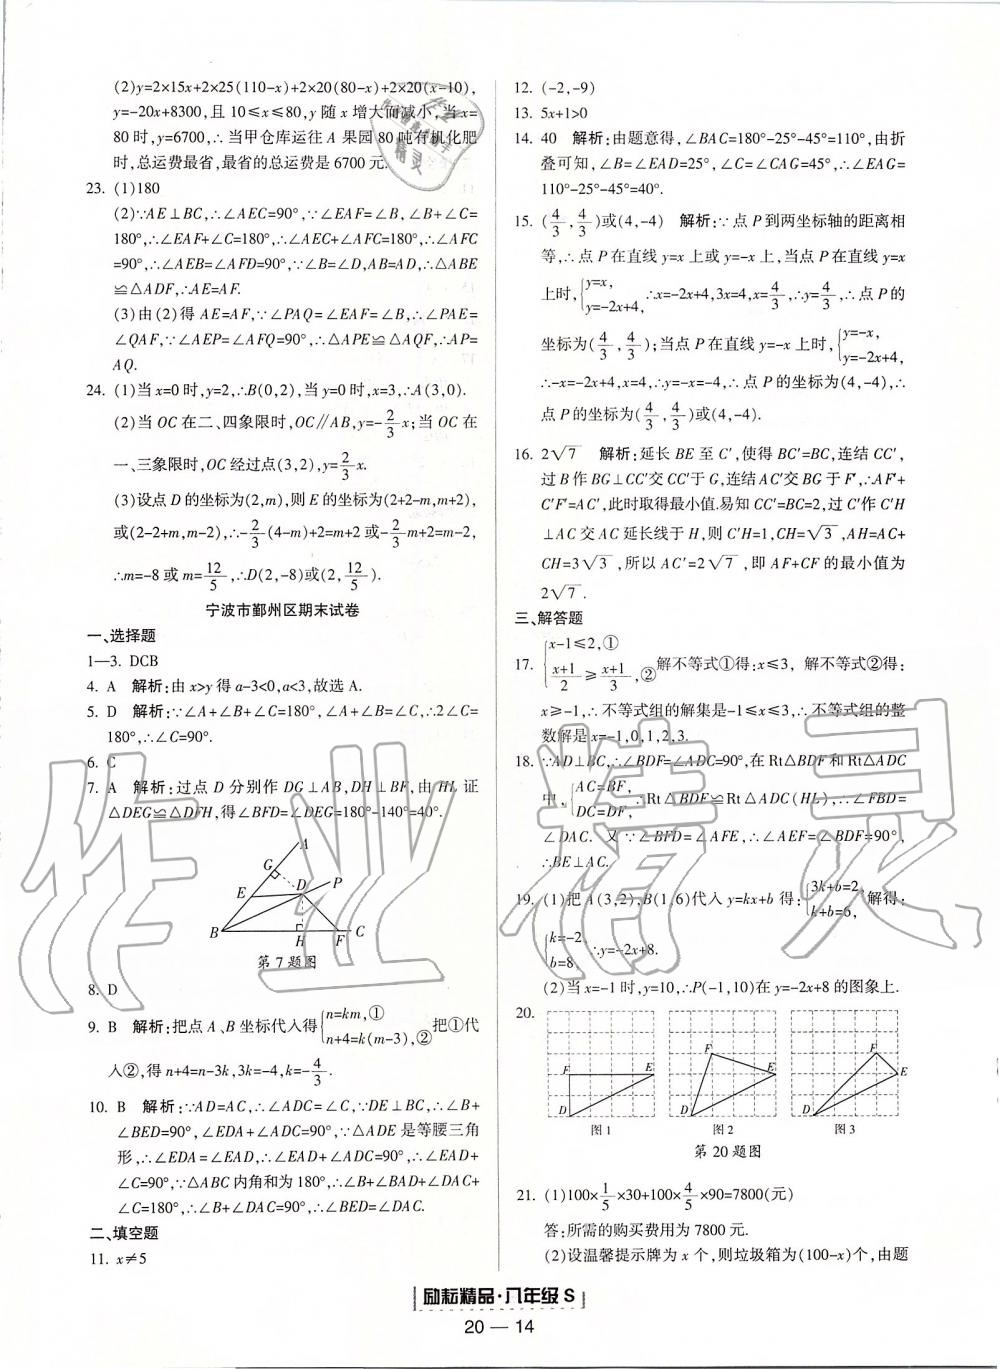 (2)y=2×15x+2×25(110-x)+2×20(80-x)+2×20(x-10),
y=-20x+8300,且10≤x≤80,y随x增大而减小,当x=
80时,y=6700,∴当甲仓库运往A果园80吨有机化肥
时,总运费最省,最省的总运费是6700元.
23. (1)180
(2)∵AE⊥BC,∴∠AEC=90°,∵∠EAF=∠B,∠B+∠C=
180°,∴∠EAF+∠C=180°,∴∠AEC+∠AFC=180°,∴∠AFC
=90°,∴∠AEB=∠AFD=90°,∵∠B=∠D,AB=AD,∴△ABE
≌△ADF,∴AE=AF.
(3)由(2)得AE=AF,∵∠PAQ=∠EAF=∠B,∴∠PAE=
∠QAF,∵∠AEP=∠AFQ=90°,∴△APE≌△AQF,∴AP=
AQ.
24. (1)当x=0时,y=2,∴B(0,2),当y=0时,x=3,∴A(3,0).
(2)当OC在二、四象限时,OC∥AB,y=-2/3x;当OC在
一、三象限时,OC经过点(3,2),y=2/3x.
(3)设点D的坐标为(2,m),则E的坐标为(2+2-m,m+2),
或(2-2+m,m-2),∴-2/3(4-m)+2=m+2或-2/3m+2=m-2,
∴m=-8或m=12/5,∴D(2,-8)或(2,12/5).
宁波市鄞州区期末试卷
一、选择题
1—3. DCB
4. A 解析:由x>y得a-3<0,a<3,故选A.
5. D 解析:∵∠A+∠B+∠C=180°,∠A+∠B=∠C,∴2∠C=
180°,∴∠C=90°.
6. C
7. A 解析:过点D分别作DG⊥AB,DH⊥BF,由HL证
△DEG≌△DFH,得∠BFD=∠BED=180°-140°=40°.
A
G
D
P
E
B
H
F
C
第7题图
8. D
9. B 解析:把点A、B坐标代入得{n=km,① n+4=k(m-3),②把①代
入②,得n+4=n-3k,3k=-4,k=-4/3.
10. B 解析:∵AD=AC,∴∠ADC=∠C,∵DE⊥BC,∴∠B+
∠BED=90°,∠EDA+∠ADC=90°,∵△ADE是等腰三角
形,∴∠EDA=∠EAD,∴∠EAD+∠ADC=90°,∴∠EAD+
∠C=90°,∵△ABC内角和为180°,∴∠B+∠BAD+∠DAC+
∠C=180°,∴∠B+∠DAC=90°,∴∠B+∠DAC=∠DAC.
二、填空题
11. x≠5
12. (-2,-9)
13. 5x+1>0
14. 40 解析:由题意得,∠BAC=180°-25°-45°=110°,由折
叠可知,∠B=∠EAD=25°,∠C=∠CAG=45°,∴∠EAG=
110°-25°-45°=40°.
15. (4/3,4/3)或(4,-4) 解析:∵点P到两坐标轴的距离相
等,∴点P在直线y=x上或y=-x上,当点P在直线y=x
上时,{y=x, y=-2x+4,∴x=-2x+4,3x=4,x=4/3,∴y=4/3,∴点P的
坐标为(4/3,4/3);当点P在直线y=-x上时,{y=-x, y=-2x+4,
∴-x=-2x+4,x=4,∴y=-x=-4,∴点P的坐标为(4,-4),∴
点P的坐标为(4/3,4/3)或(4,-4).
16. 2√7 解析:延长BE至C′,使得BC′=BC,连结CC′,
过B作BG⊥CC′交CC′于G,连结AC′交BG于F′,∴AF′+
C′F′=AC′,此时取得最小值.易知CC′=BC=2,过C′作C′H
⊥AC交AC延长线于H,则C′H=1,CH=√3,AH=AC+
CH=3√3,所以AC′=2√7,即AF+CF的最小值为
2√7.
三、解答题
17. {x-1≤2,① (x+1)/2≥(x+1)/3,②解不等式①得:x≤3,解不等式②得:
x≥-1,∴不等式组的解集是-1≤x≤3,∴不等式组的整
数解是x=-1,0,1,2,3.
18. ∵AD⊥BC,∴∠BDF=∠ADC=90°,在Rt△BDF和Rt△ADC
中,{AC=BF, DC=DF,∴Rt△BDF≌Rt△ADC(HL),∴∠FBD=
∠DAC.又∵∠BFD=∠AFE,∴∠AEF=∠BDF=90°,
∴BE⊥AC.
19. (1)把A(3,2),B(1,6)代入y=kx+b得:{3k+b=2, k+b=6,解得:
{k=-2 b=8,∴y=-2x+8.
(2)当x=-1时,y=10,∴P(-1,10)在y=-2x+8的图象上.
20.
F E D 图1
F E D 图2
F E D 图3
第20题图
21. (1)100×1/5×30+100×4/5×90=7800(元)
答:所需的购买费用为7800元.
(2)设温馨提示牌为x个,则垃圾箱为(100-x)个,由题
励耘精品·八年级 S
20 — 14
作业精灵